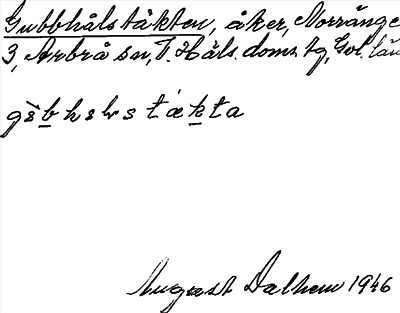 Gubbhålstäkten, åker, Norränge
3, Arbrå sn, V. Häls. doms. tg, Gvl. län
August Dalhem 1946